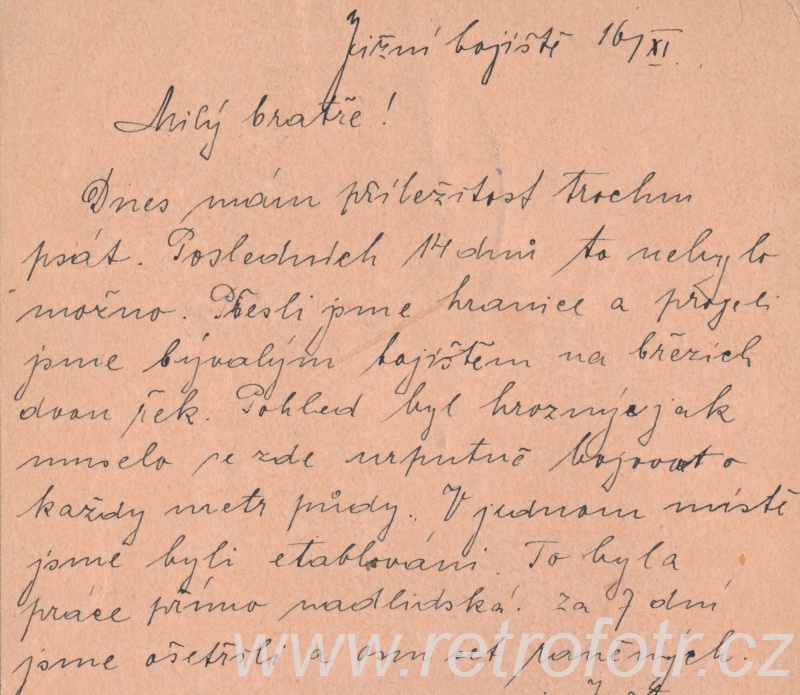 Jižní bojiště 16/XI.
Milý bratře!
Dnes mám příležitost trochu
psát. Posledních 14 dnů to nebylo
možno. Přešli jsme hranice a projeli
jsme bývalým bojištěm na březích
dvou řek. Pohled byl hrozný jak
muselo se zde urputně bojovat o
každý metr půdy. V jednom místě
jsme byli etablováni. To byla
práce přímo nadlidská. Za 7 dní
jsme ošetřili a osm set raněných.
www.retrofotr.cz